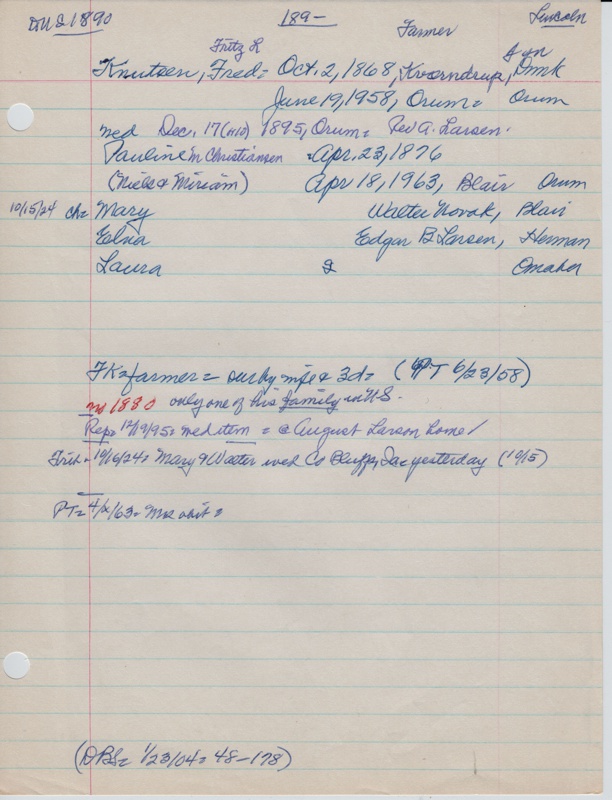 1890 189- Lincoln
Fritz L Farmer
Knutsen, Fred= Oct. 2, 1868, Dmk
June 19, 1958, Orum= Orum
med Dec. 17 (#10) 1895, Orum= Rev A. Larsen.
Pauline M Christiansen Apr. 23, 1876
(Niels & Miriam) Apr 18, 1963, Blair Orum
10/15/24 ch= Mary Walter Novak, Blair
Elna Edgar B Larsen, Herman
Laura Omaha
FK= farmer= sur by wife & 3d= (PT 6/23/58)
1880 only one of his family in US.
Rep= 12/19/95= med item = @ August Larson home/
10/16/24= Mary & Walter wed Co Bluffs, Ia yesterday (10/5)
PT= 4/2/63= Mrs obit=
(DBS= 1/23/04= 48-178)